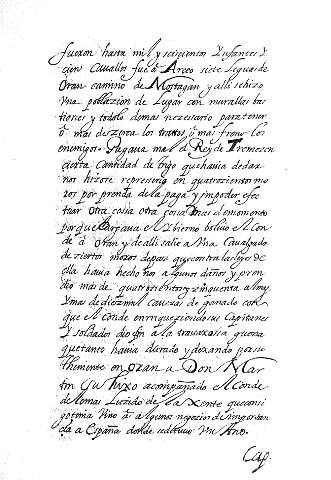 fueron hasta mil y seiscientos Ynfantes Y
cien Cavallos fue à Arceo siete leguas de
Oran camino de Mostagan y alli se hizo
Vna poblazion de Lugar con murallas bas
tiones y todo lo demas necessario para tener
ò mas de zerca los tratos, ò mas freno los
enemigos. Pagava mal el Rey de Tremecen
cierta Cantidad de trigo que havia de dar
nos hizose represeria en quatrocientos mo
ros por prenda de la paga y in poder efec
tuar otra cosa mas el
porque el Ybierno bolvio el Con
de à Oran y de alli salio a Vna Cavalgada
de ziertos moros de paz que contra las leyes de
ella havia hecho algunos daños y pren
dio mas de quatrocientos y zinquenta
Y mas de diez mil Cavezas de ganado con
que el Conde enrriqueziendo sus Capitanes
Y soldados dio fin a la guerra
que tanto havia durado y dexando por su
theniente en Oran a Don Mar
tin su hixo acompañado el Conde
de lo mas Luzido de la Xente que consi
go tenia Vino à algunos negocios de importan
cia a España donde Vn Año.
Cap.